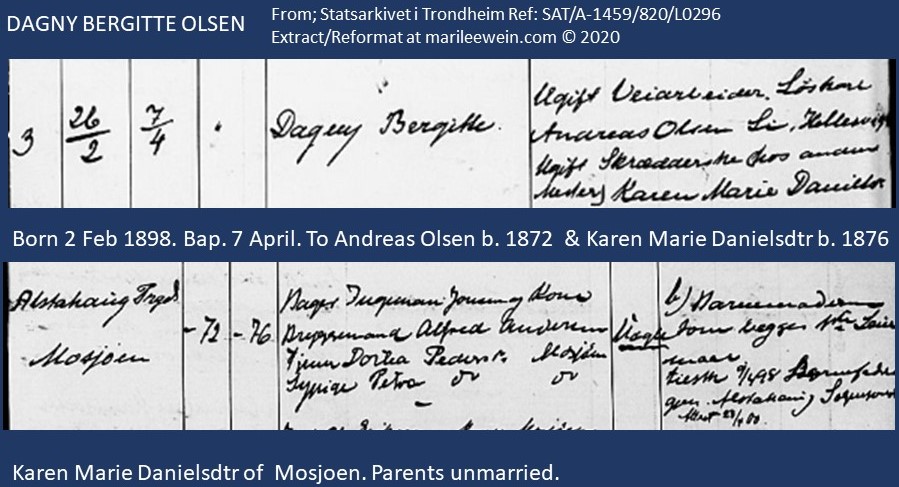 DAGNY BERGITTE OLSEN
From; Statsarkivet i Trondheim Ref: SAT/A-1459/820/L0296
Extract/Reformat at marileewein.com © 2020
3 26/2 7/4 Dagny Bergitte.
Ugift Veiarbeider. Løskarl
Andreas Olsen
Ugift Skrædderske hos anden
Karen Marie Daniels
Born 2 Feb 1898. Bap. 7 April. To Andreas Olsen b. 1872 & Karen Marie Danielsdtr b. 1876
Alstahaug
Mosjøen
-72 -76
Bager Kone
Alfred Andersen
Dortea Peders Mosjøen
Petra
Uægte
b) Barnemoderen
som begges
Barnefader
Alstahaug
Karen Marie Danielsdtr of Mosjoen. Parents unmarried.